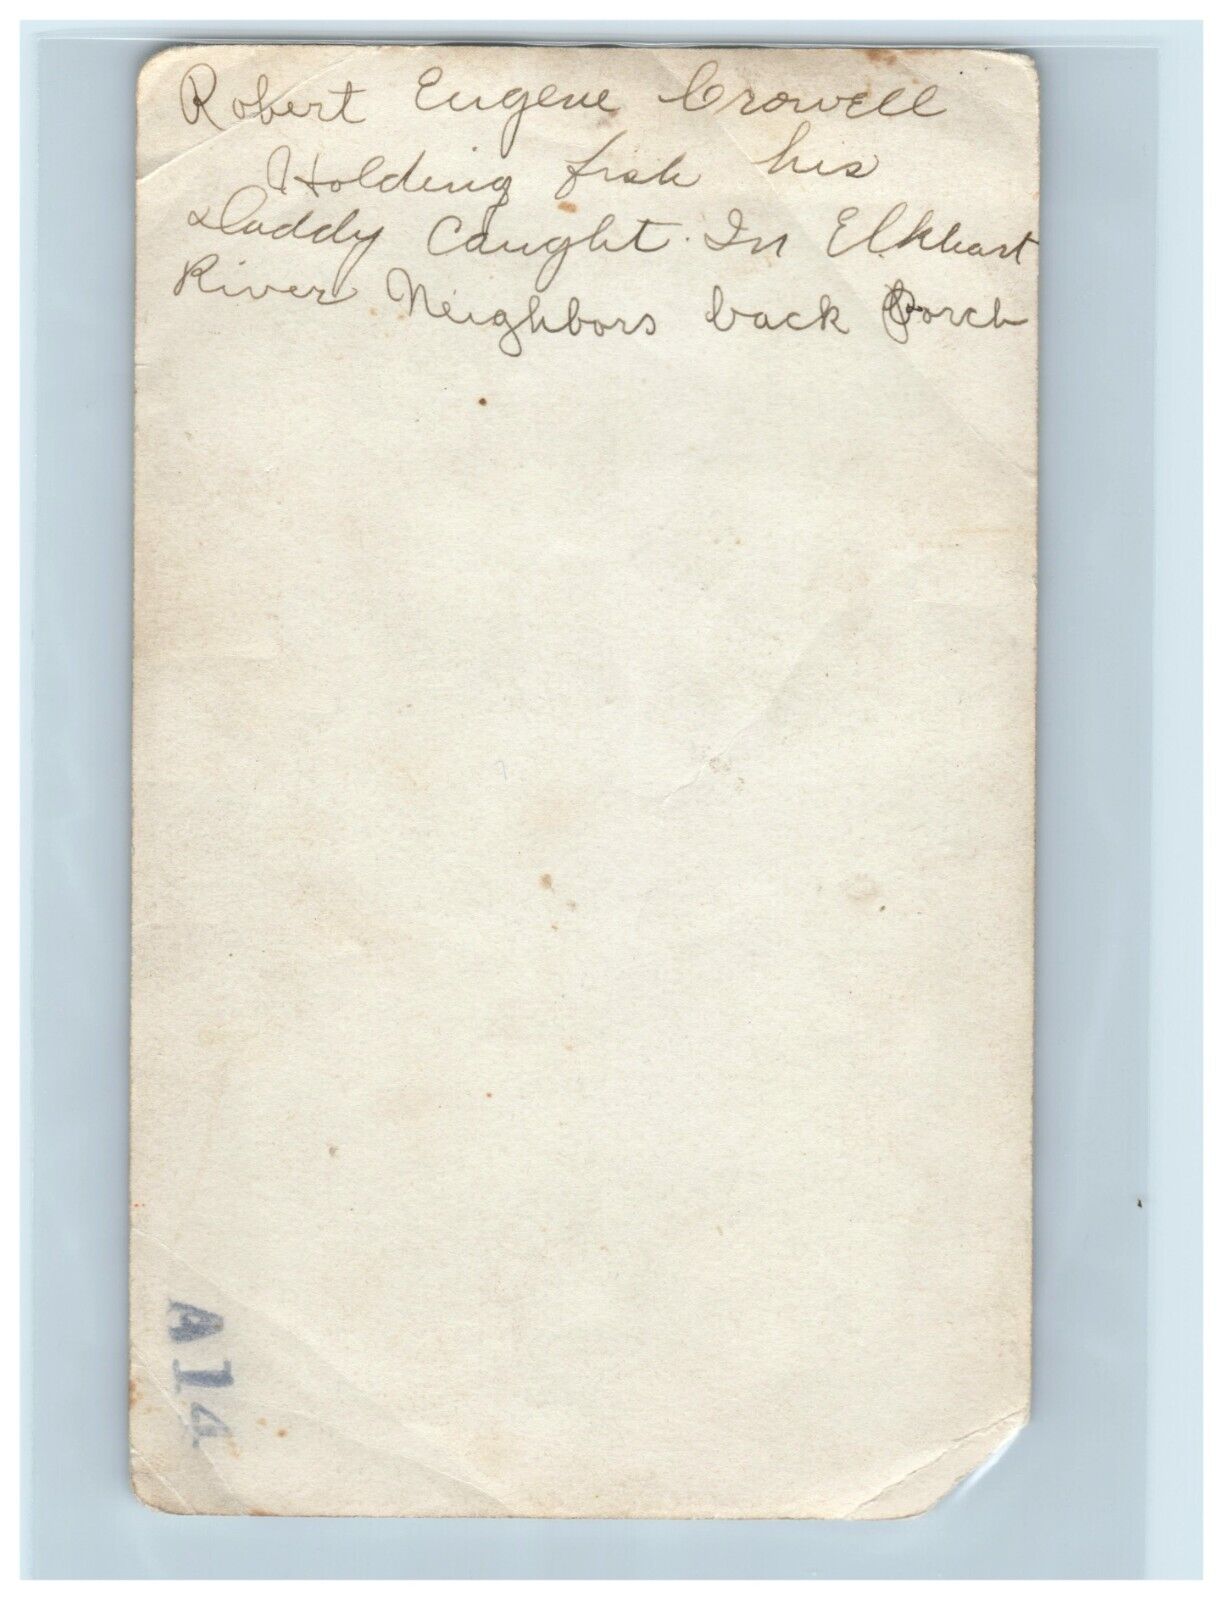 Robert Eugene Crowell
Holding fish his
Daddy Caught. In Elkhart
River Neighbors back Porch
A14